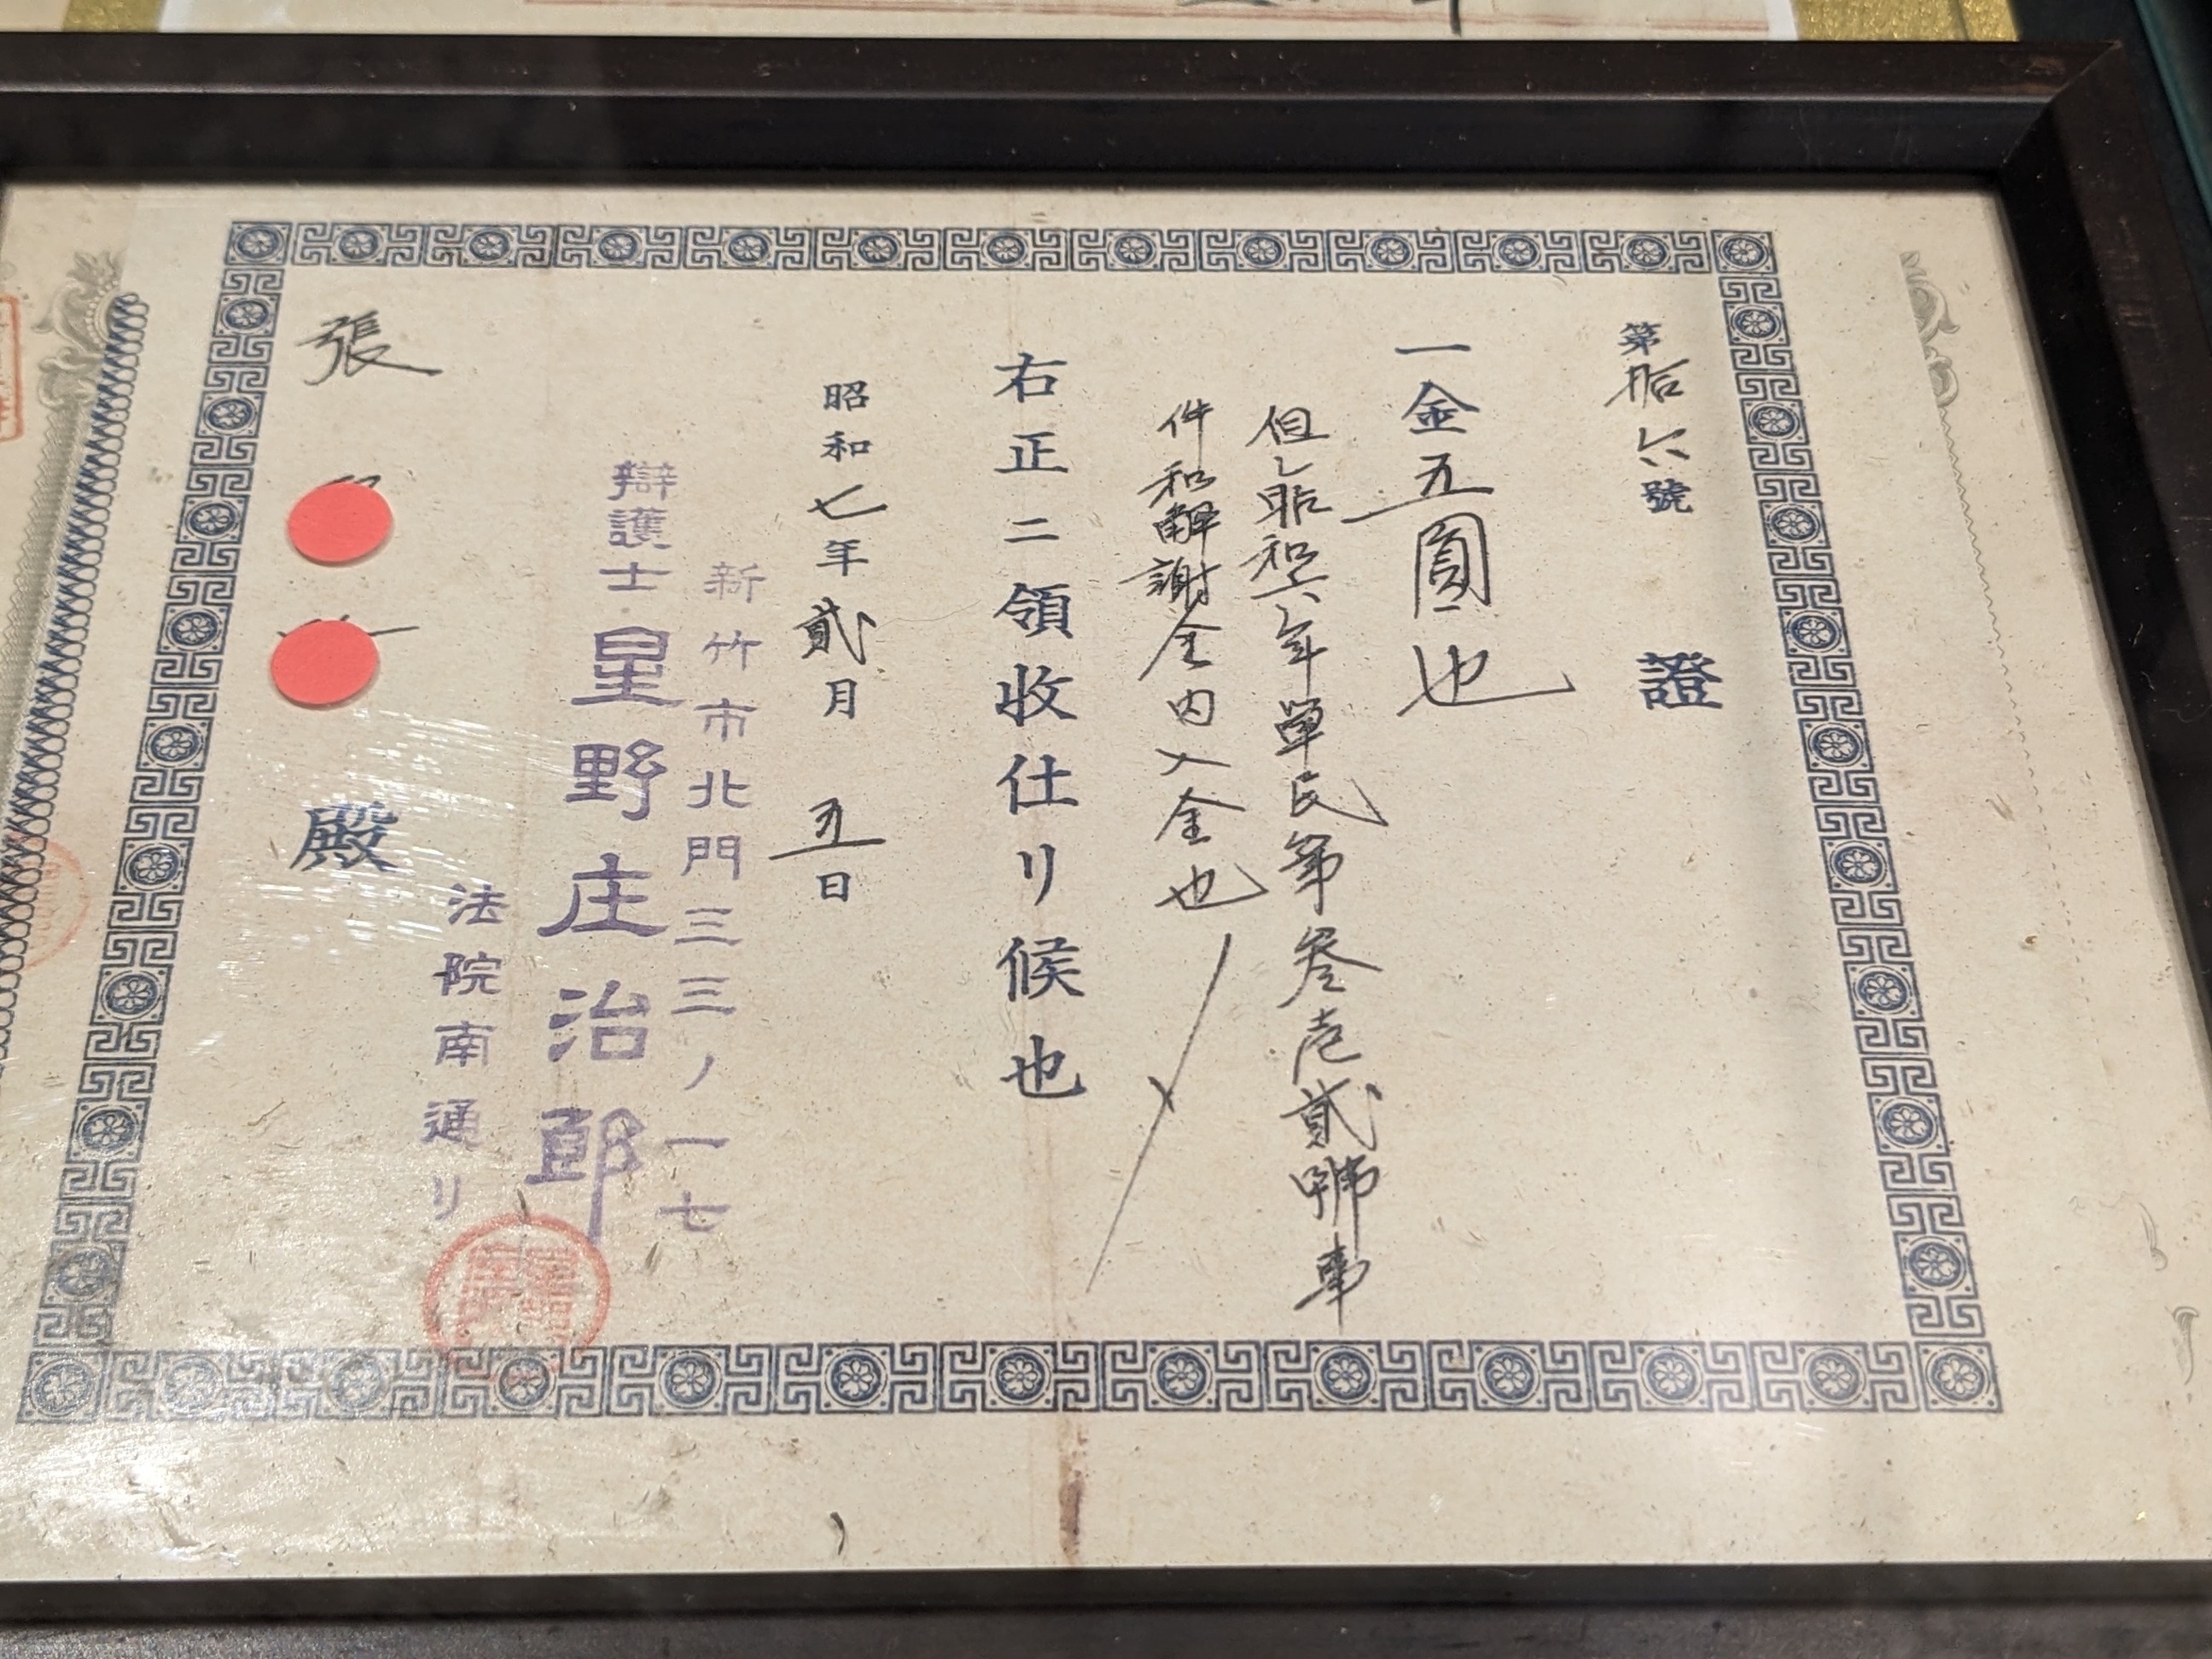 第拾六號
證
一金五圓也
但シ昭和六年單民第叁壱貳號事
件和解謝金内入金也
右正ニ領收仕リ候也
昭和七年貳月五日
新竹市北門三三ノ一七
辯護士 星野庄治郎
法院南通リ
張 殿